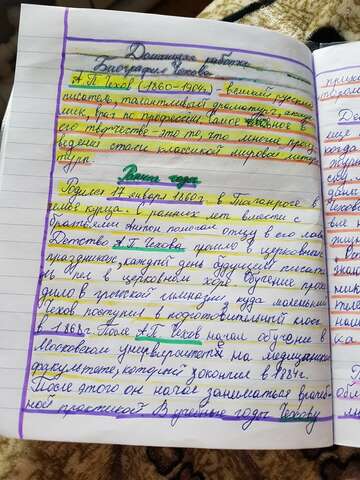 Домашняя работа
Биография Чехова
А П Чехов (1860-1904г.) - великий русский
писатель, талантливый драматург, акаде-
мик, врач по профессии. Самое главное в
его творчестве - это то, что многие произ-
ведения стали классикой мировой литера-
туры.
Ранние года
Родился 17 января 1860г. в Таганроге в
семье купца. С ранних лет вместе с
братьями Антон помогал отцу в его лавке
Детство А П Чехова прошло в церковных
праздниках, каждый день будущий писатель
пел в церковном хоре. Обучение прохо-
дило в греческой гимназии, куда маленький
Чехов поступил в подготовительный класс
в 1868г. После А П Чехов начал обучение в
Московском университете на медицинском
факультете, который закончил в 1884г.
После этого он начал заниматься врачеб-
ной практикой. В учебные годы Чехову